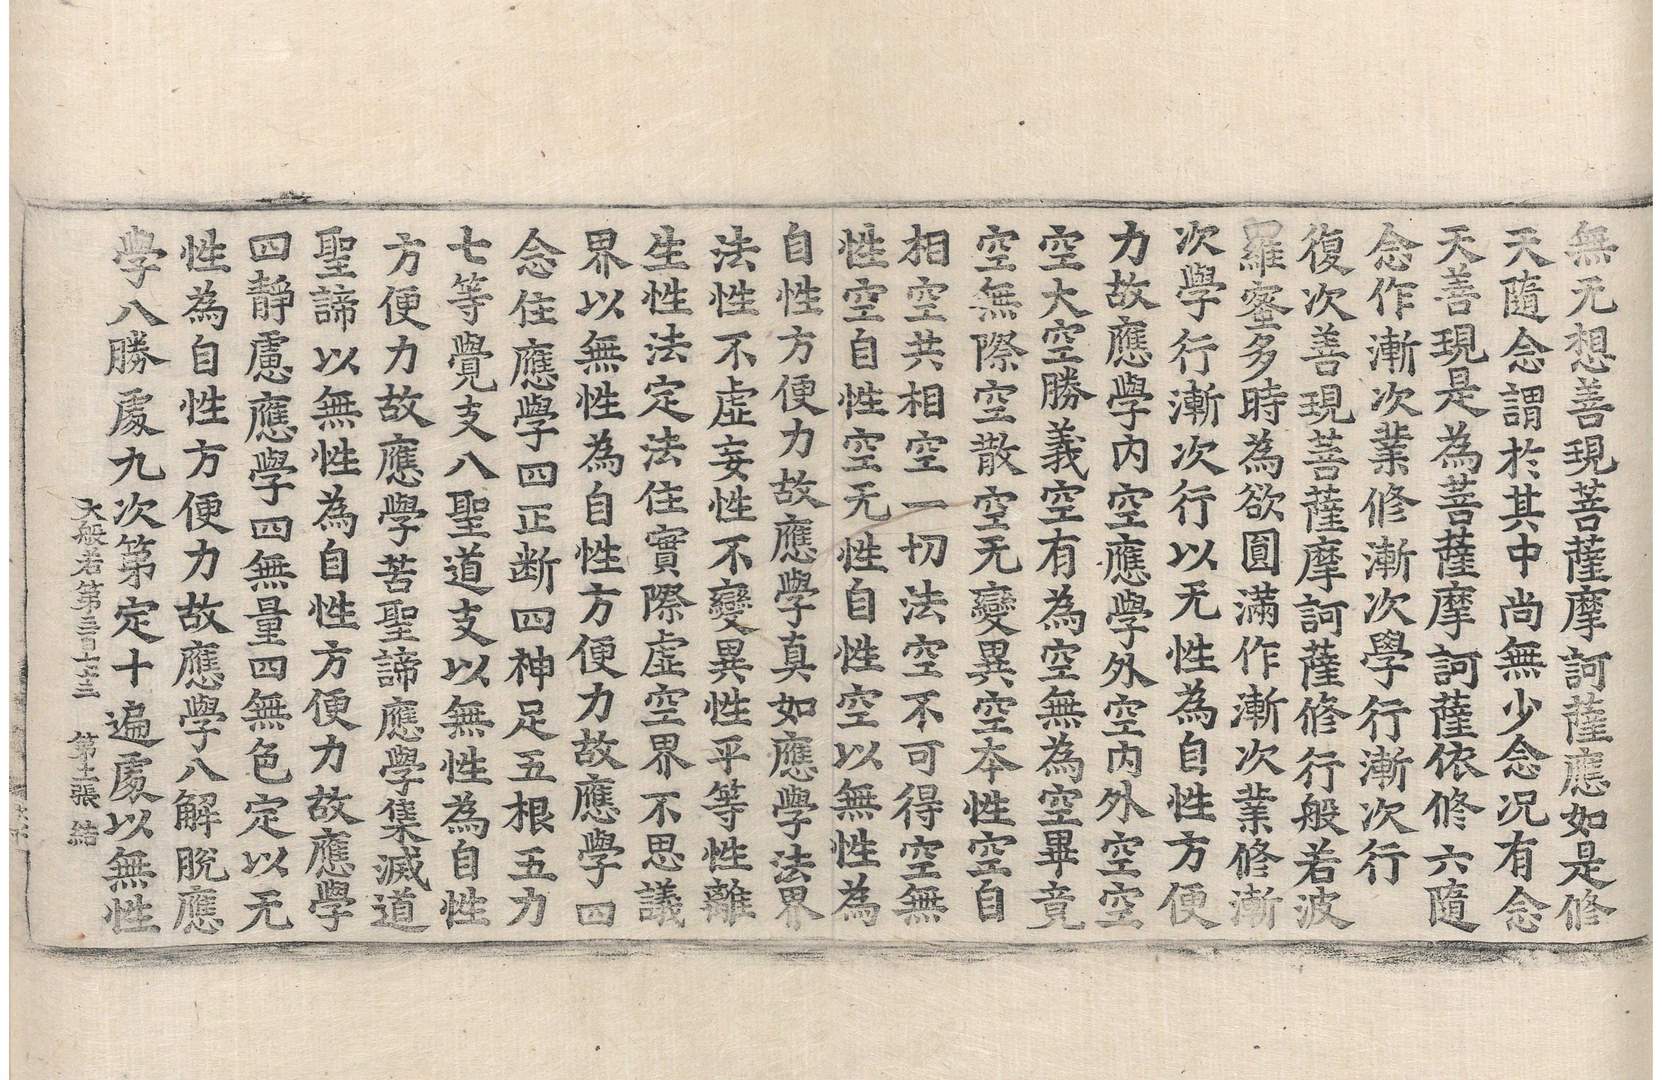 無无想善現菩薩摩訶薩應如是修
天隨念謂於其中尚無少念况有念
天善現是為菩薩摩訶薩依修六隨
念作漸次業修漸次學行漸次行
復次善現菩薩摩訶薩修行般若波
羅蜜多時為欲圎滿作漸次業修漸
次學行漸次行以无性為自性方便
力故應學內空應學外空內外空空
空大空勝義空有為空無為空畢竟
空無際空散空无變異空本性空自
相空共相空一切法空不可得空無
性空自性空无性自性空以無性為
自性方便力故應學真如應學法界
法性不虛妄性不變異性平等性離
生性法定法住實際虛空界不思議
界以無性為自性方便力故應學四
念住應學四正断四神足五根五力
七等覺支八聖道支以無性為自性
方便力故應學苦聖諦應學集滅道
聖諦以無性為自性方便力故應學
四靜慮應學四無量四無色定以无
性為自性方便力故應學八解脫應
學八勝處九次第定十遍處以無性
大般若第三百七十三 第十張 結